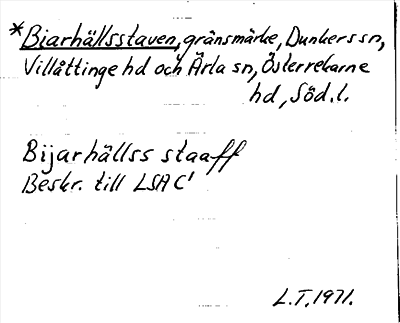 *Biarhällsstaven, gränsmärke, Dunkers sn,
Villåttinge hd och Ärla sn, Österrekarne
hd, Söd.l.
Bijarhällss staaff
Beskr. till LSA C¹
L.T. 1971.